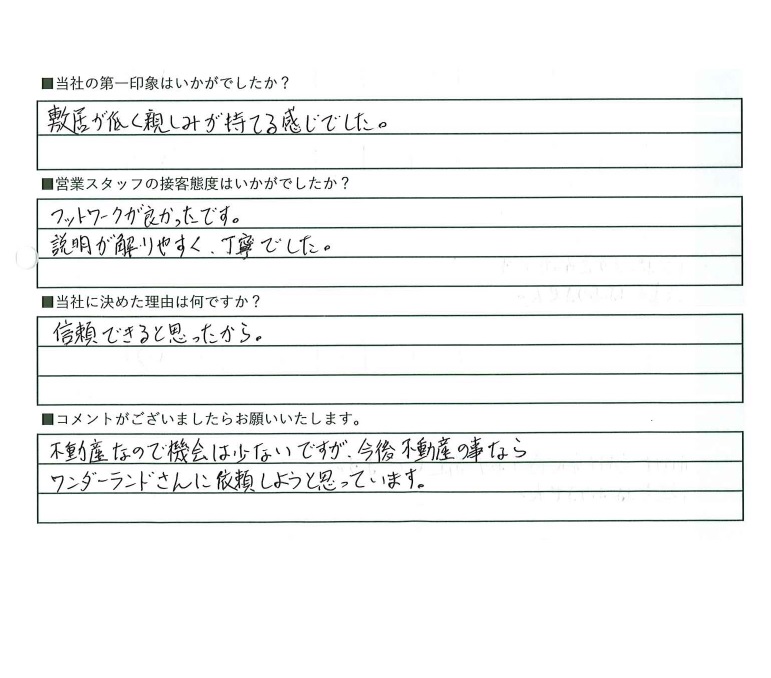 ■当社の第一印象はいかがでしたか？
敷居が低く親しみが持てる感じでした。
■営業スタッフの接客態度はいかがでしたか？
フットワークが良かったです。
説明が解りやすく、丁寧でした。
■当社に決めた理由は何ですか？
信頼できると思ったから。
■コメントがございましたらお願いいたします。
不動産なので機会は少ないですが、今後不動産の事なら
ワンダーランドさんに依頼しようと思っています。